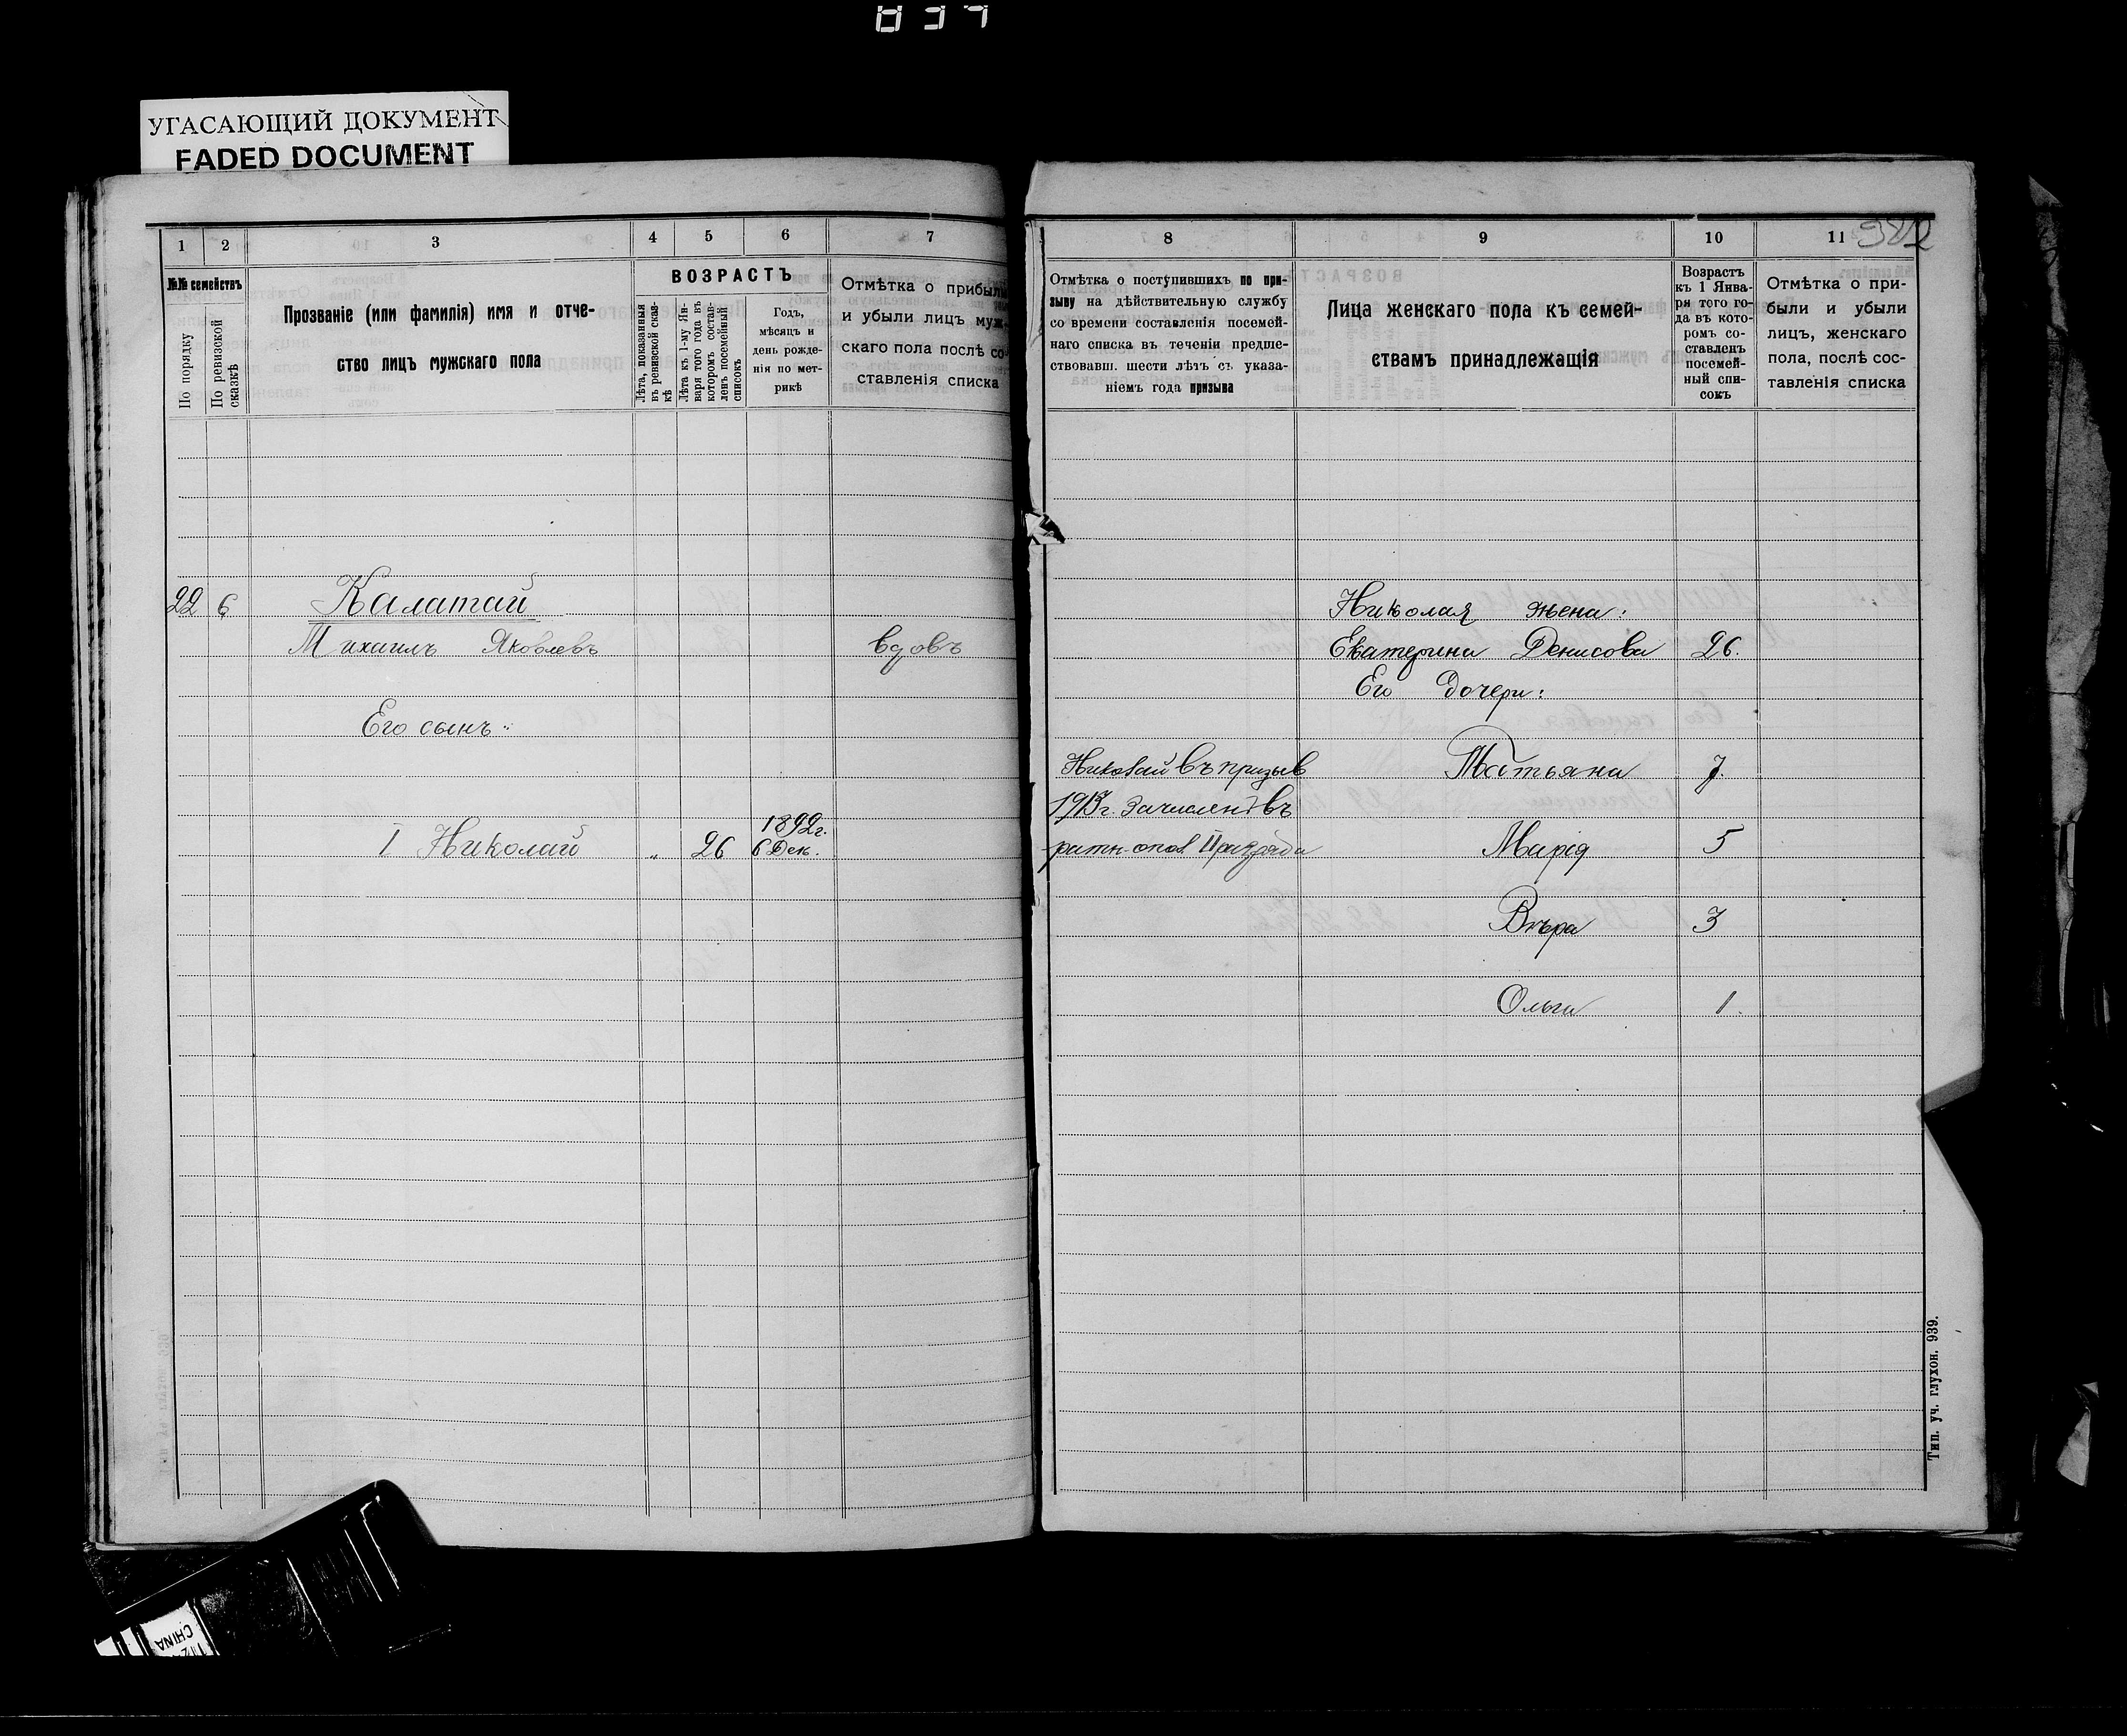 837
УГАСАЮЩИЙ ДОКУМЕНТ
FADED DOCUMENT
1 2 3 4 5 6 7
№№ семействъ
По порядку
По ревизской сказкѣ
Прозваніе (или фамилія) имя и отче-
ство лицъ мужскаго пола
ВОЗРАСТЪ
Лѣта, показанныя
въ ревизской сказ-
кѣ
Лѣта къ 1-му Ян-
варя того года въ
которомъ состав-
ленъ посемейный
списокъ
Годъ,
мѣсяцъ и
день рожде-
нія по мет-
рикѣ
Отмѣтка о прибыли
и убыли лицъ муж-
скаго пола послѣ со-
ставленія списка
22 6 Калатай
Михаилъ Яковлевъ вдовъ
Его сынъ:
1892г.
I Николай „ 26 6 Дек.
8 9 10 11
Отмѣтка о поступившихъ по при-
зыву на дѣйствительную службу
со времени составленія посемей-
наго списка въ теченіи предше-
ствовавш. шести лѣтъ съ указа-
ніемъ года призыва
Лица женскаго пола къ семей-
ствамъ принадлежащія
Возрастъ
къ 1 Янва-
ря того го-
да въ кото-
ромъ со-
ставленъ
посемей-
ный спи-
сокъ
Отмѣтка о при-
были и убыли
лицъ, женскаго
пола, послѣ сос-
тавленія списка
Николая жена:
Екатерина Денисова 26.
Его дочери:
Николай въ призыв Татьяна 7.
зачислен въ
ратн. опол. II разряда Марія 5
Вѣра 3
Ольга 1.
Тип. уч. глухон. 939.
CHINA